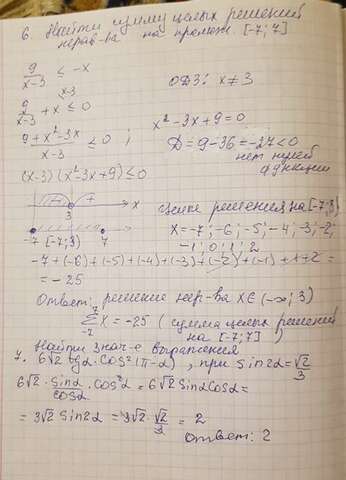 6. Найти сумму целых решений
нерав-ва на промеж. [-7; 7]
9/(x-3) ≤ -x
ОДЗ: x ≠ 3
9/(x-3) + x ≤ 0
(9 + x² - 3x)/(x-3) ≤ 0 ;
x² - 3x + 9 = 0
D = 9 - 36 = -27 < 0
нет нулей
функции
(x-3)(x² - 3x + 9) ≤ 0
- + x
3
целые решения на [-7; 3)
-7 [-7; 3) 7
x = -7; -6; -5; -4; -3; -2;
-1; 0; 1; 2
-7 + (-6) + (-5) + (-4) + (-3) + (-2) + (-1) + 1 + 2 =
= -25
Ответ: решение нер-ва x ∈ (-∞; 3)
Σ x = -25 (сумма целых решений
на [-7; 7])
7. Найти знач-е выражения
6√2 tgα · cos²(π-α), при sin2α = √2/3
6√2 · sinα/cosα · cos²α = 6√2 sinα cosα =
= 3√2 sin2α = 3√2 · √2/3 = 2
Ответ: 2